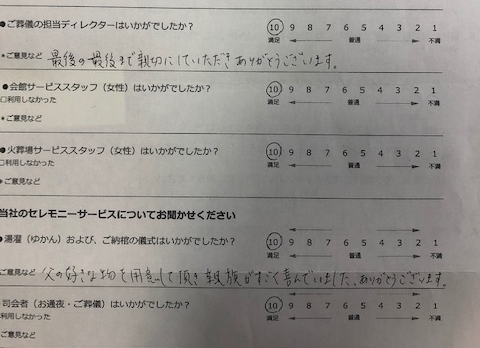 ●ご葬儀の担当ディレクターはいかがでしたか？ 10 9 8 7 6 5 4 3 2 1
満足 普通 不満
*ご意見など 最後の最後まで親切にしていただきありがとうございます。
●会館サービススタッフ（女性）はいかがでしたか？ 10 9 8 7 6 5 4 3 2 1
□利用しなかった 満足 普通 不満
*ご意見など
●火葬場サービススタッフ（女性）はいかがでしたか？ 10 9 8 7 6 5 4 3 2 1
□利用しなかった 満足 普通 不満
*ご意見など
当社のセレモニーサービスについてお聞かせください
●湯灌（ゆかん）および、ご納棺の儀式はいかがでしたか？ 10 9 8 7 6 5 4 3 2 1
利用しなかった 満足 普通 不満
ご意見など 父の好きな物を用意して頂き親族がすごく喜んでいました、ありがとうございます。
司会者（お通夜・ご葬儀）はいかがでしたか？ 10 9 8 7 6 5 4 3 2 1
利用しなかった 満足 普通 不満
ご意見など